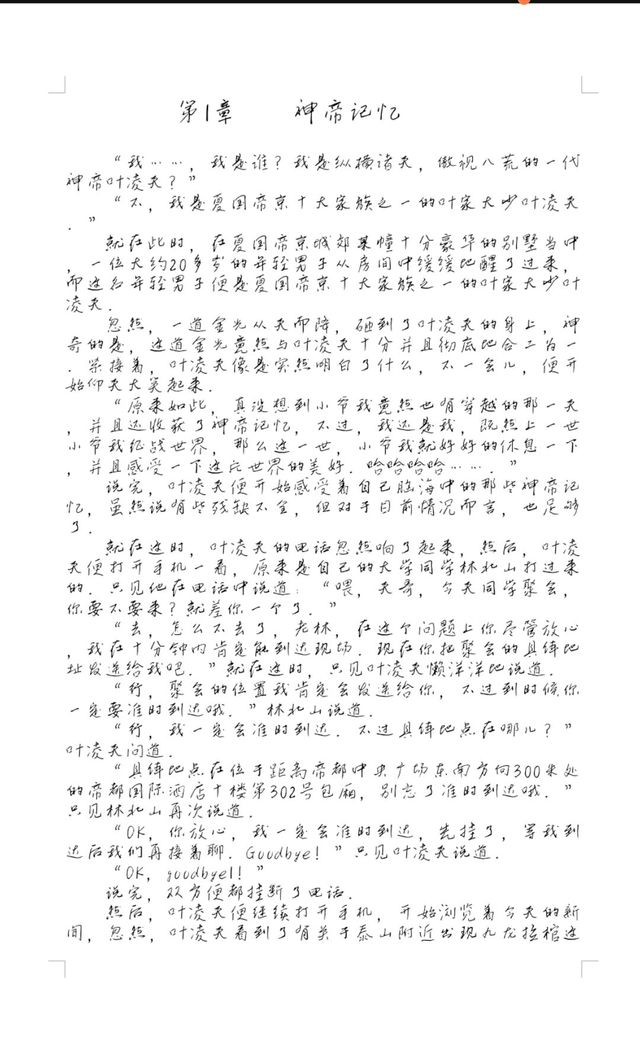 第1章 神帝记忆
“我……，我是谁？我是纵横诸天，傲视八荒的一代
神帝叶凌天？”
“不，我是夏国帝京十大家族之一的叶家大少叶凌天
。”
就在此时，在夏国帝京城郊某幢十分豪华的别墅当中
，一位大约20多岁的年轻男子从房间中缓缓地醒了过来，
而这名年轻男子便是夏国帝京十大家族之一的叶家大少叶
凌天．
忽然，一道金光从天而降，砸到了叶凌天的身上，神
奇的是，这道金光竟然与叶凌天十分并且彻底地合二为一
．紧接着，叶凌天像是突然明白了什么，不一会儿，便开
始仰天大笑起来．
“原来如此，真没想到小爷我竟然也有穿越的那一天
，并且还收获了神帝记忆，不过，我还是我，既然上一世
小爷我征战世界，那么这一世，小爷我就好好的休息一下
，并且感受一下这个世界的美好．哈哈哈哈……．”
说完，叶凌天便开始感受着自己脑海中的那些神帝记
忆，虽然说有些残缺不全，但对于目前情况而言，也足够
了．
就在这时，叶凌天的电话忽然响了起来，然后，叶凌
天便打开手机一看，原来是自己的大学同学林北山打过来
的．只见他在电话中说道：“喂，天哥，今天同学聚会，
你要不要来？就差你一个了．”
“去，怎么不去了，老林，在这个问题上你尽管放心
，我在十分钟内肯定能到达现场．现在你把聚会的具体地
址发送给我吧．”就在这时，只见叶凌天懒洋洋地说道．
“行，聚会的位置我肯定会发送给你，不过到时候你
一定要准时到达哦．”林北山说道．
“行，我一定会准时到达．不过具体地点在哪儿？”
叶凌天问道．
“具体地点在位于距离帝都中央广场东南方向300米处
的帝都国际酒店十楼第302号包厢，别忘了准时到达哦．”
只见林北山再次说道．
“OK，你放心，我一定会准时到达，先挂了，等我到
达后我们再接着聊．Goodbye！”只见叶凌天说道．
“OK，goodbye！！”
说完，双方便都挂断了电话．
然后，叶凌天便继续打开手机，开始浏览着今天的新
闻，忽然，叶凌天看到了有关于泰山附近出现九龙拉棺这